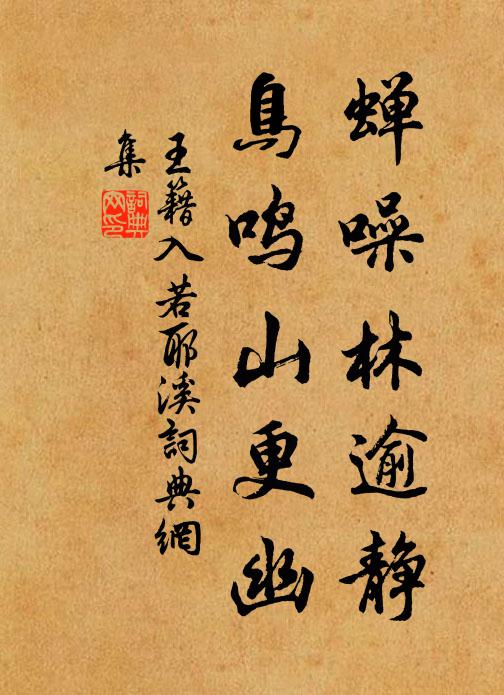 蝉噪林逾静
鳥鸣山更幽
王籍入若耶溪詞典網
集
詞典
网印